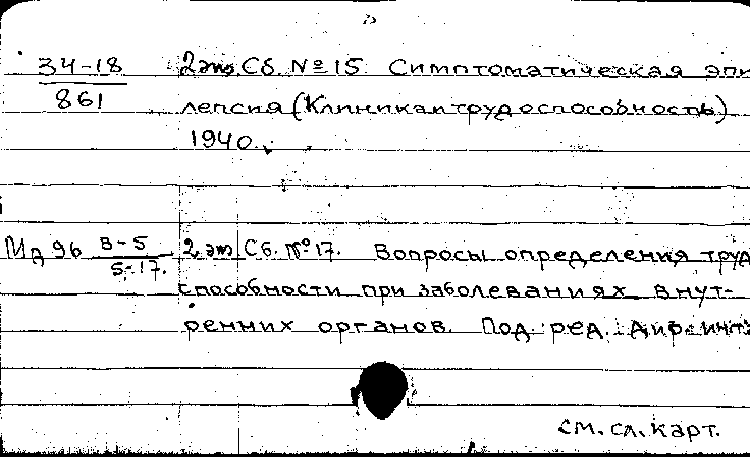 34-18 2 эт Сб. № 15. Симптоматическая эпи
861 лепсия (Клиника и трудоспособность)
1940.
МД 96 В-5 2 эт Сб. № 17. Вопросы определения труд
5-17. способности при заболеваниях внут-
ренних органов. Под ред. дир. инт.
см. сл. карт.